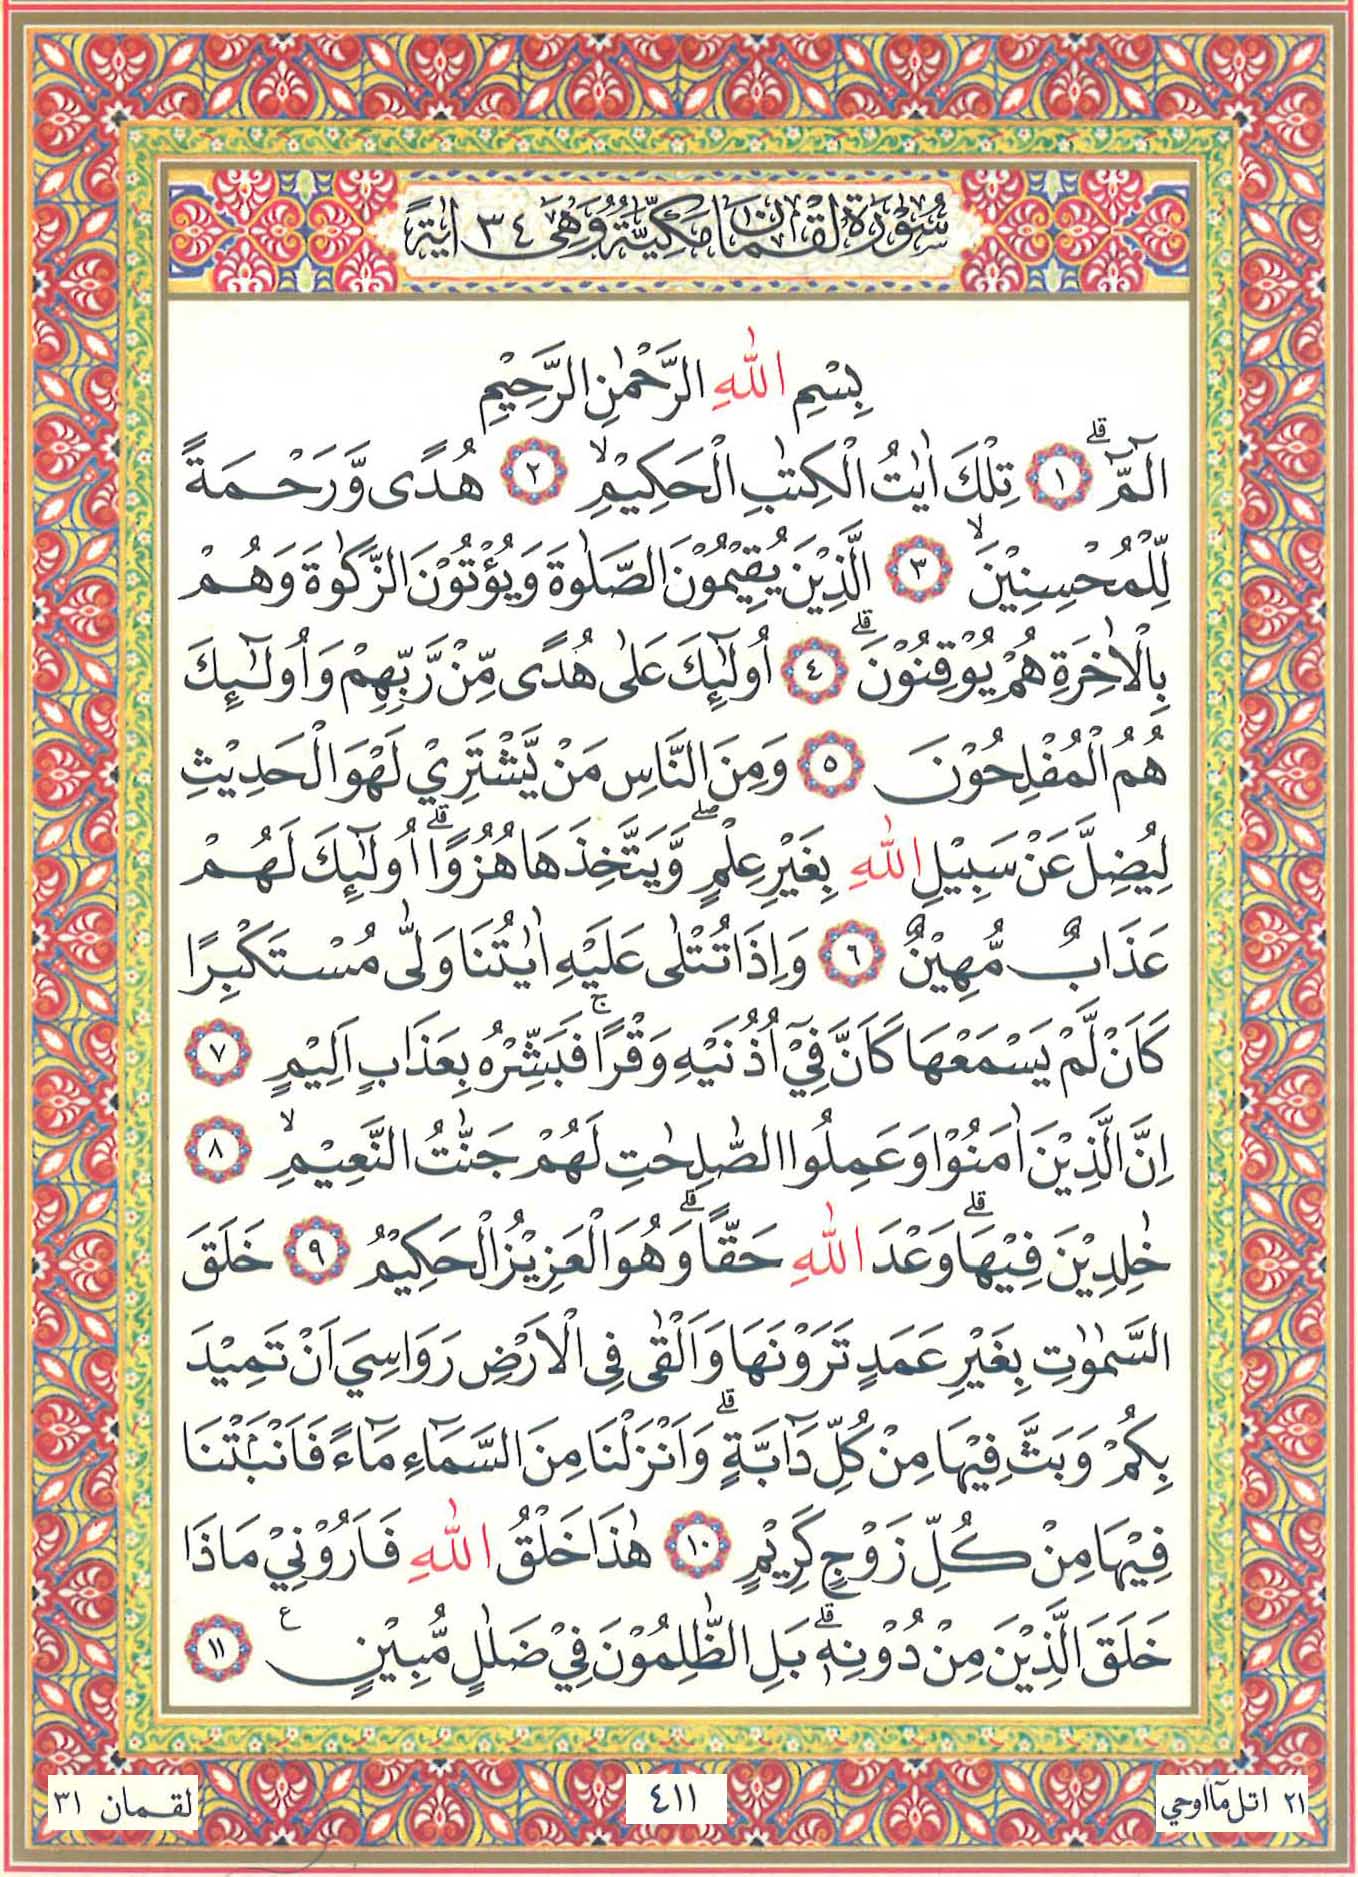 سُوْرَةُ لُقْمٰنَ مَكِّيَّةٌ وَهِيَ ٣٤ اٰيَةً
بِسْمِ اللّٰهِ الرَّحْمٰنِ الرَّحِيْمِ
الٓمّٓ ۗ ١ تِلْكَ اٰيٰتُ الْكِتٰبِ الْحَكِيْمِۙ ٢ هُدًى وَّرَحْمَةً
لِّلْمُحْسِنِيْنَۙ ٣ الَّذِيْنَ يُقِيْمُوْنَ الصَّلٰوةَ وَيُؤْتُوْنَ الزَّكٰوةَ وَهُمْ
بِالْاٰخِرَةِ هُمْ يُوْقِنُوْنَۗ ٤ اُولٰۤىِٕكَ عَلٰى هُدًى مِّنْ رَّبِّهِمْ وَاُولٰۤىِٕكَ
هُمُ الْمُفْلِحُوْنَ ٥ وَمِنَ النَّاسِ مَنْ يَّشْتَرِيْ لَهْوَ الْحَدِيْثِ
لِيُضِلَّ عَنْ سَبِيْلِ اللّٰهِ بِغَيْرِ عِلْمٍۖ وَّيَتَّخِذَهَا هُزُوًاۗ اُولٰۤىِٕكَ لَهُمْ
عَذَابٌ مُّهِيْنٌ ٦ وَاِذَا تُتْلٰى عَلَيْهِ اٰيٰتُنَا وَلّٰى مُسْتَكْبِرًا
كَاَنْ لَّمْ يَسْمَعْهَا كَاَنَّ فِيْٓ اُذُنَيْهِ وَقْرًاۚ فَبَشِّرْهُ بِعَذَابٍ اَلِيْمٍ ٧
اِنَّ الَّذِيْنَ اٰمَنُوْا وَعَمِلُوا الصّٰلِحٰتِ لَهُمْ جَنّٰتُ النَّعِيْمِۙ ٨
خٰلِدِيْنَ فِيْهَاۗ وَعْدَ اللّٰهِ حَقًّاۗ وَهُوَ الْعَزِيْزُ الْحَكِيْمُ ٩ خَلَقَ
السَّمٰوٰتِ بِغَيْرِ عَمَدٍ تَرَوْنَهَا وَاَلْقٰى فِى الْاَرْضِ رَوَاسِيَ اَنْ تَمِيْدَ
بِكُمْ وَبَثَّ فِيْهَا مِنْ كُلِّ دَاۤبَّةٍۗ وَاَنْزَلْنَا مِنَ السَّمَاۤءِ مَاۤءً فَاَنْۢبَتْنَا
فِيْهَا مِنْ كُلِّ زَوْجٍ كَرِيْمٍ ١٠ هٰذَا خَلْقُ اللّٰهِ فَاَرُوْنِيْ مَاذَا
خَلَقَ الَّذِيْنَ مِنْ دُوْنِهٖۗ بَلِ الظّٰلِمُوْنَ فِيْ ضَلٰلٍ مُّبِيْنٍ ࣖ ١١
٢١ اتل مآ اوحي
٤١١
لقمان ٣١